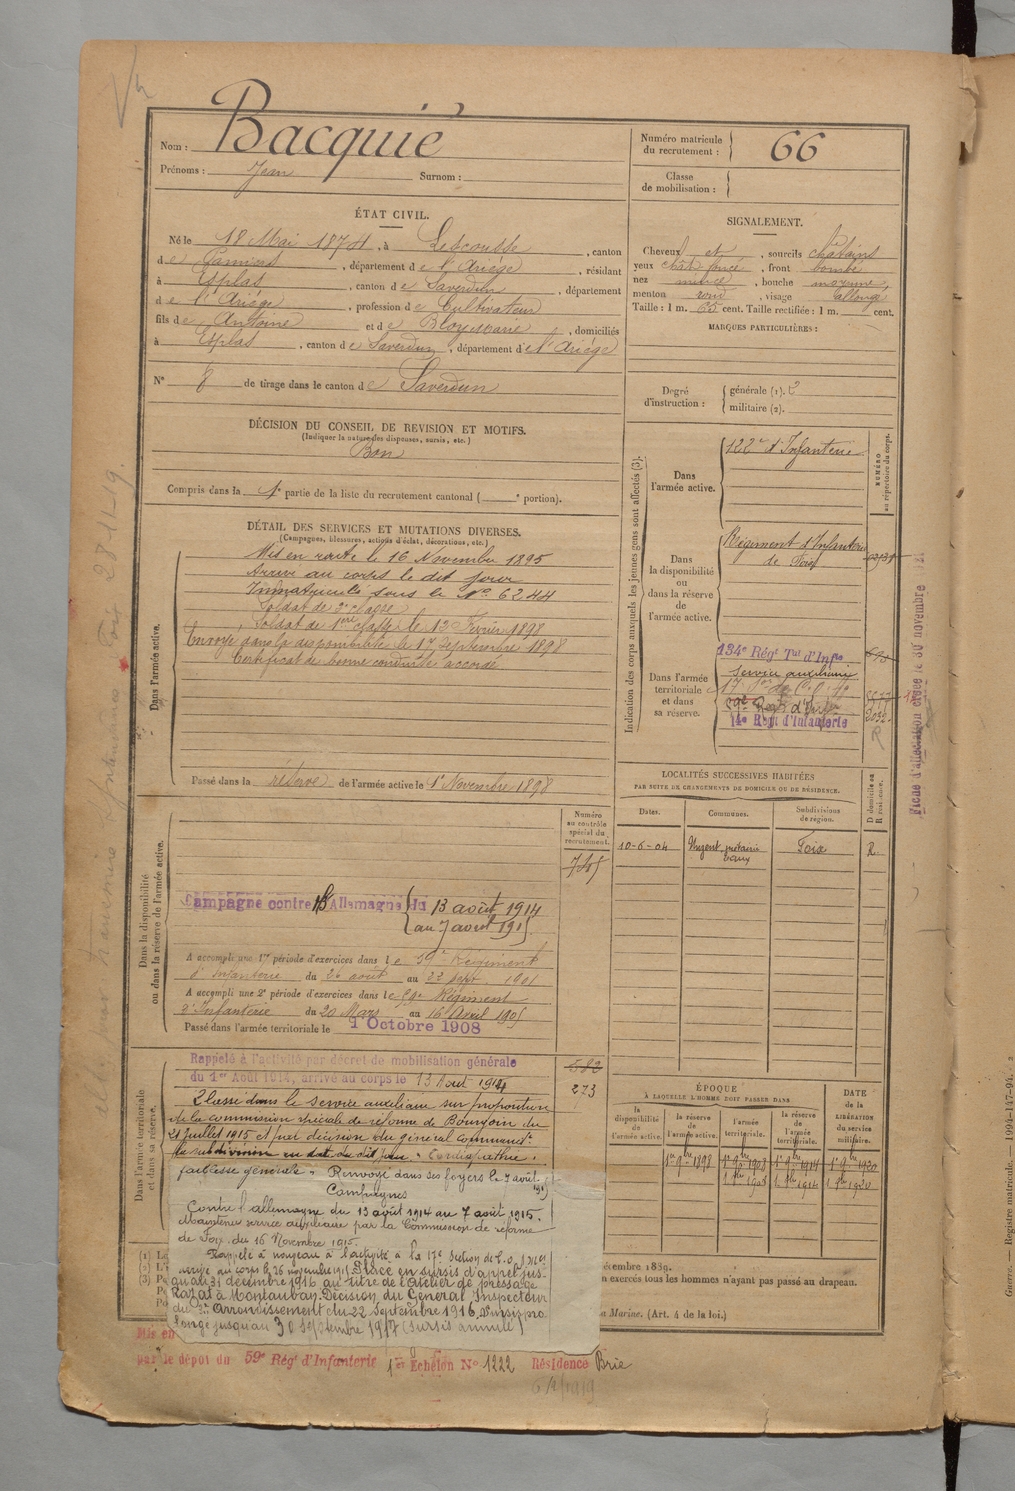 Nom : Bacquié
Prénoms : Jean Surnom :
Numéro matricule du recrutement : 66
Classe de mobilisation :
ÉTAT CIVIL.
Né le 18 Mai 1874, à Lescousse, canton
de Pamiers, département de l'Ariège, résidant
à Esplas, canton de Saverdun, département
de l'Ariège, profession de Cultivateur
fils de Antoine et de Bloy Marie, domiciliés
à Esplas, canton de Saverdun, département de l'Ariège
N° 8 de tirage dans le canton de Saverdun
SIGNALEMENT.
Cheveux et, sourcils châtains
yeux chât. foncé, front bombé
nez mince, bouche moyenne,
menton rond, visage allongé
Taille : 1 m. 65 cent. Taille rectifiée : 1 m. cent.
MARQUES PARTICULIÈRES :
Degré d'instruction : générale (1). 3
militaire (2).
DÉCISION DU CONSEIL DE REVISION ET MOTIFS.
(Indiquer la nature des dispenses, sursis, etc.)
Bon
Compris dans la 1e partie de la liste du recrutement cantonal ( e portion).
DÉTAIL DES SERVICES ET MUTATIONS DIVERSES.
(Campagnes, blessures, actions d'éclat, décorations, etc.)
Dans l'armée active.
Mis en route le 16 Novembre 1895
Arrivé au corps le dit jour
Immatriculé sous le N° 6244
Soldat de 2e classe
Soldat de 1ère classe le 13 Février 1898
Envoyé dans la disponibilité le 17 Septembre 1898
Certificat de bonne conduite accordé
Passé dans la réserve de l'armée active le 1er Novembre 1898
Indication des corps auxquels les jeunes gens sont affectés (3).
NUMÉRO au répertoire du corps.
Dans l'armée active.
122e d'Infanterie
Dans la disponibilité ou dans la réserve de l'armée active.
Régiment d'Infanterie
de Foix
Dans l'armée territoriale et dans sa réserve.
134e Régt Tal d'Infie
Service auxiliaire
59e Régt d'Infie
14e Régt d'Infanterie
Fiche d'affectation
LOCALITÉS SUCCESSIVES HABITÉES
PAR SUITE DE CHANGEMENTS DE DOMICILE OU DE RÉSIDENCE.
Dates. Communes. Subdivisions de région. D domicile ou R résidence.
10-6-04 Foix R.
Dans la disponibilité ou dans la réserve de l'armée active.
Numéro au contrôle spécial du recrutement.
Campagne contre l'Allemagne du 13 août 1914
au 7 août 1915
A accompli une 1re période d'exercices dans le 59e Régiment
d'Infanterie du 26 août au 22 sept. 1901
A accompli une 2e période d'exercices dans le 59e Régiment
d'Infanterie du 20 Mars au 16 Avril 1905
Passé dans l'armée territoriale le 1 Octobre 1908
Dans l'armée territoriale et dans sa réserve.
Rappelé à l'activité par décret de mobilisation générale
du 1er Août 1914, arrivé au corps le 13 Août 1914
582
273
Classé dans le service auxiliaire sur proposition
de la commission spéciale de réforme de Bourgoin du
21 juillet 1915 et par décision du général commandt
la subdivision en date du dit jour "Cardiopathie.
faiblesse générale" Renvoyé dans ses foyers le 7 août 1915
Campagnes
Contre l'allemagne du 13 août 1914 au 7 août 1915.
Maintenu service auxiliaire par la Commission de réforme
de Foix du 16 Novembre 1915.
Rappelé à nouveau à l'activité à la 17e Section de C.O.
arrivé au corps le 26 novembre 1915 Placé en sursis d'appel jus-
qu'au 31 décembre 1916 au titre de l'Atelier de pressage
Razat à Montauban. Décision du Général Inspecteur
du Arrondissement du 22 Septembre 1916, Sursis pro-
longé jusqu'au 30 Septembre 1917 (sursis annulé)
ÉPOQUE
À LAQUELLE L'HOMME DOIT PASSER DANS
la disponibilité de l'armée active. la réserve de l'armée active. l'armée territoriale. la réserve de l'armée territoriale. DATE de la LIBÉRATION du service militaire.
1er 9bre 1898 1er 9bre 1908 1er 9bre 1914 1er 9bre 1920
1 8bre 1908 1 8bre 1914 1 8bre 1920
écembre 1889.
n exercés tous les hommes n'ayant pas passé au drapeau.
a Marine. (Art. 4 de la loi.)
(1)
(2)
(3)
Mis en
par le dépôt du 59e Régt d'Infanterie 1er Echelon N° 1222 Résidence Brie
Guerre. — Registre matricule. — 1094-147-94.